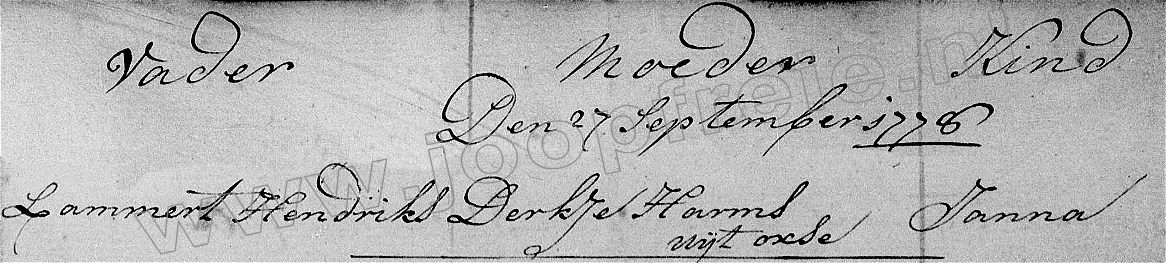 Vader Moeder Kind
Den 27 September 1778
Lammert Hendriks Derkje Harms Janna
uijt oxse
www.joopfreie.nl